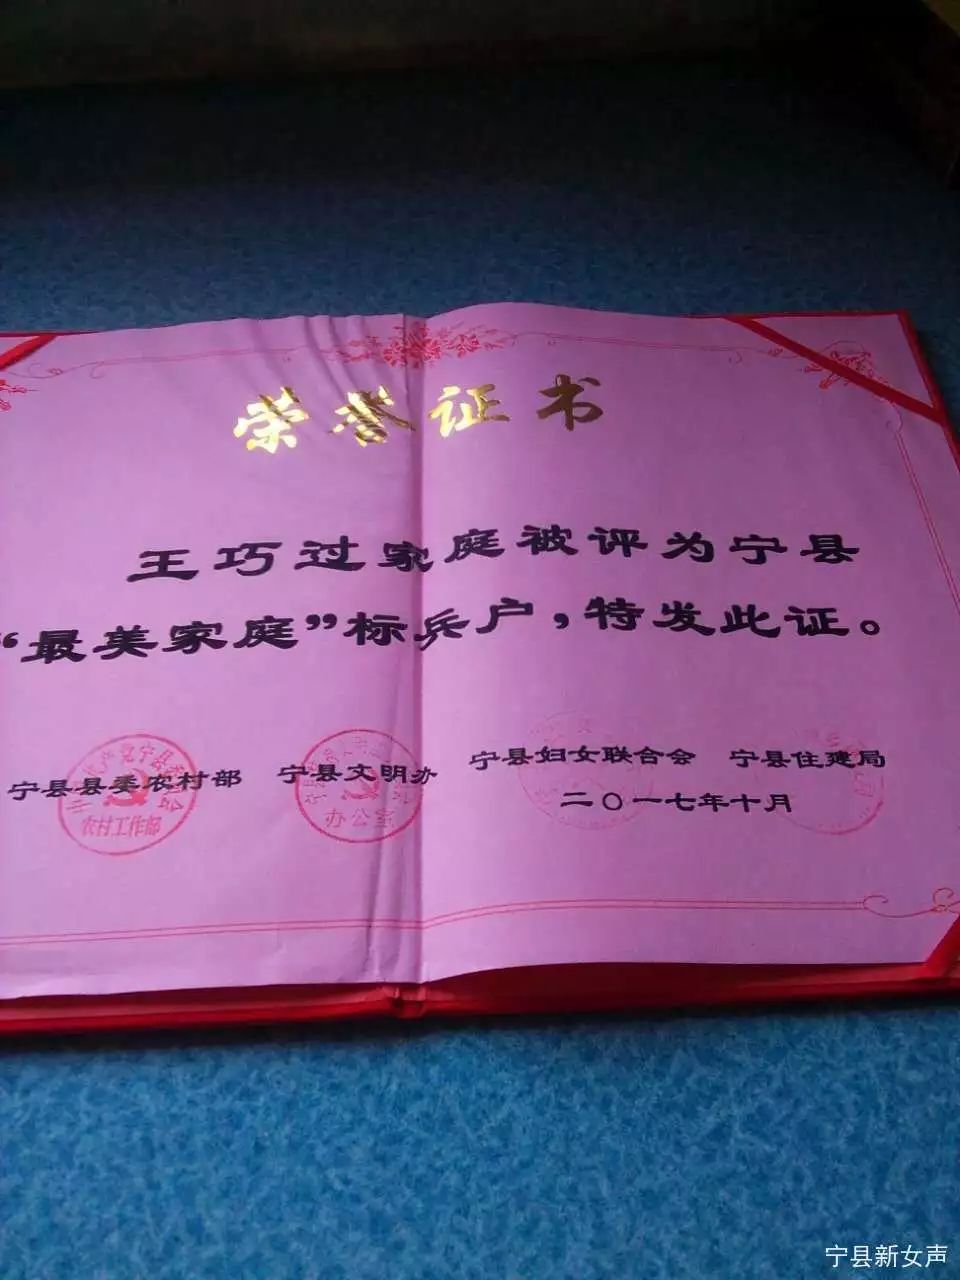 荣誉证书
王巧过家庭被评为宁县
“最美家庭”标兵户,特发此证。
宁县县委农村部 宁县文明办 宁县妇女联合会 宁县住建局
二〇一七年十月
农村工作部
办公室
宁县新女声